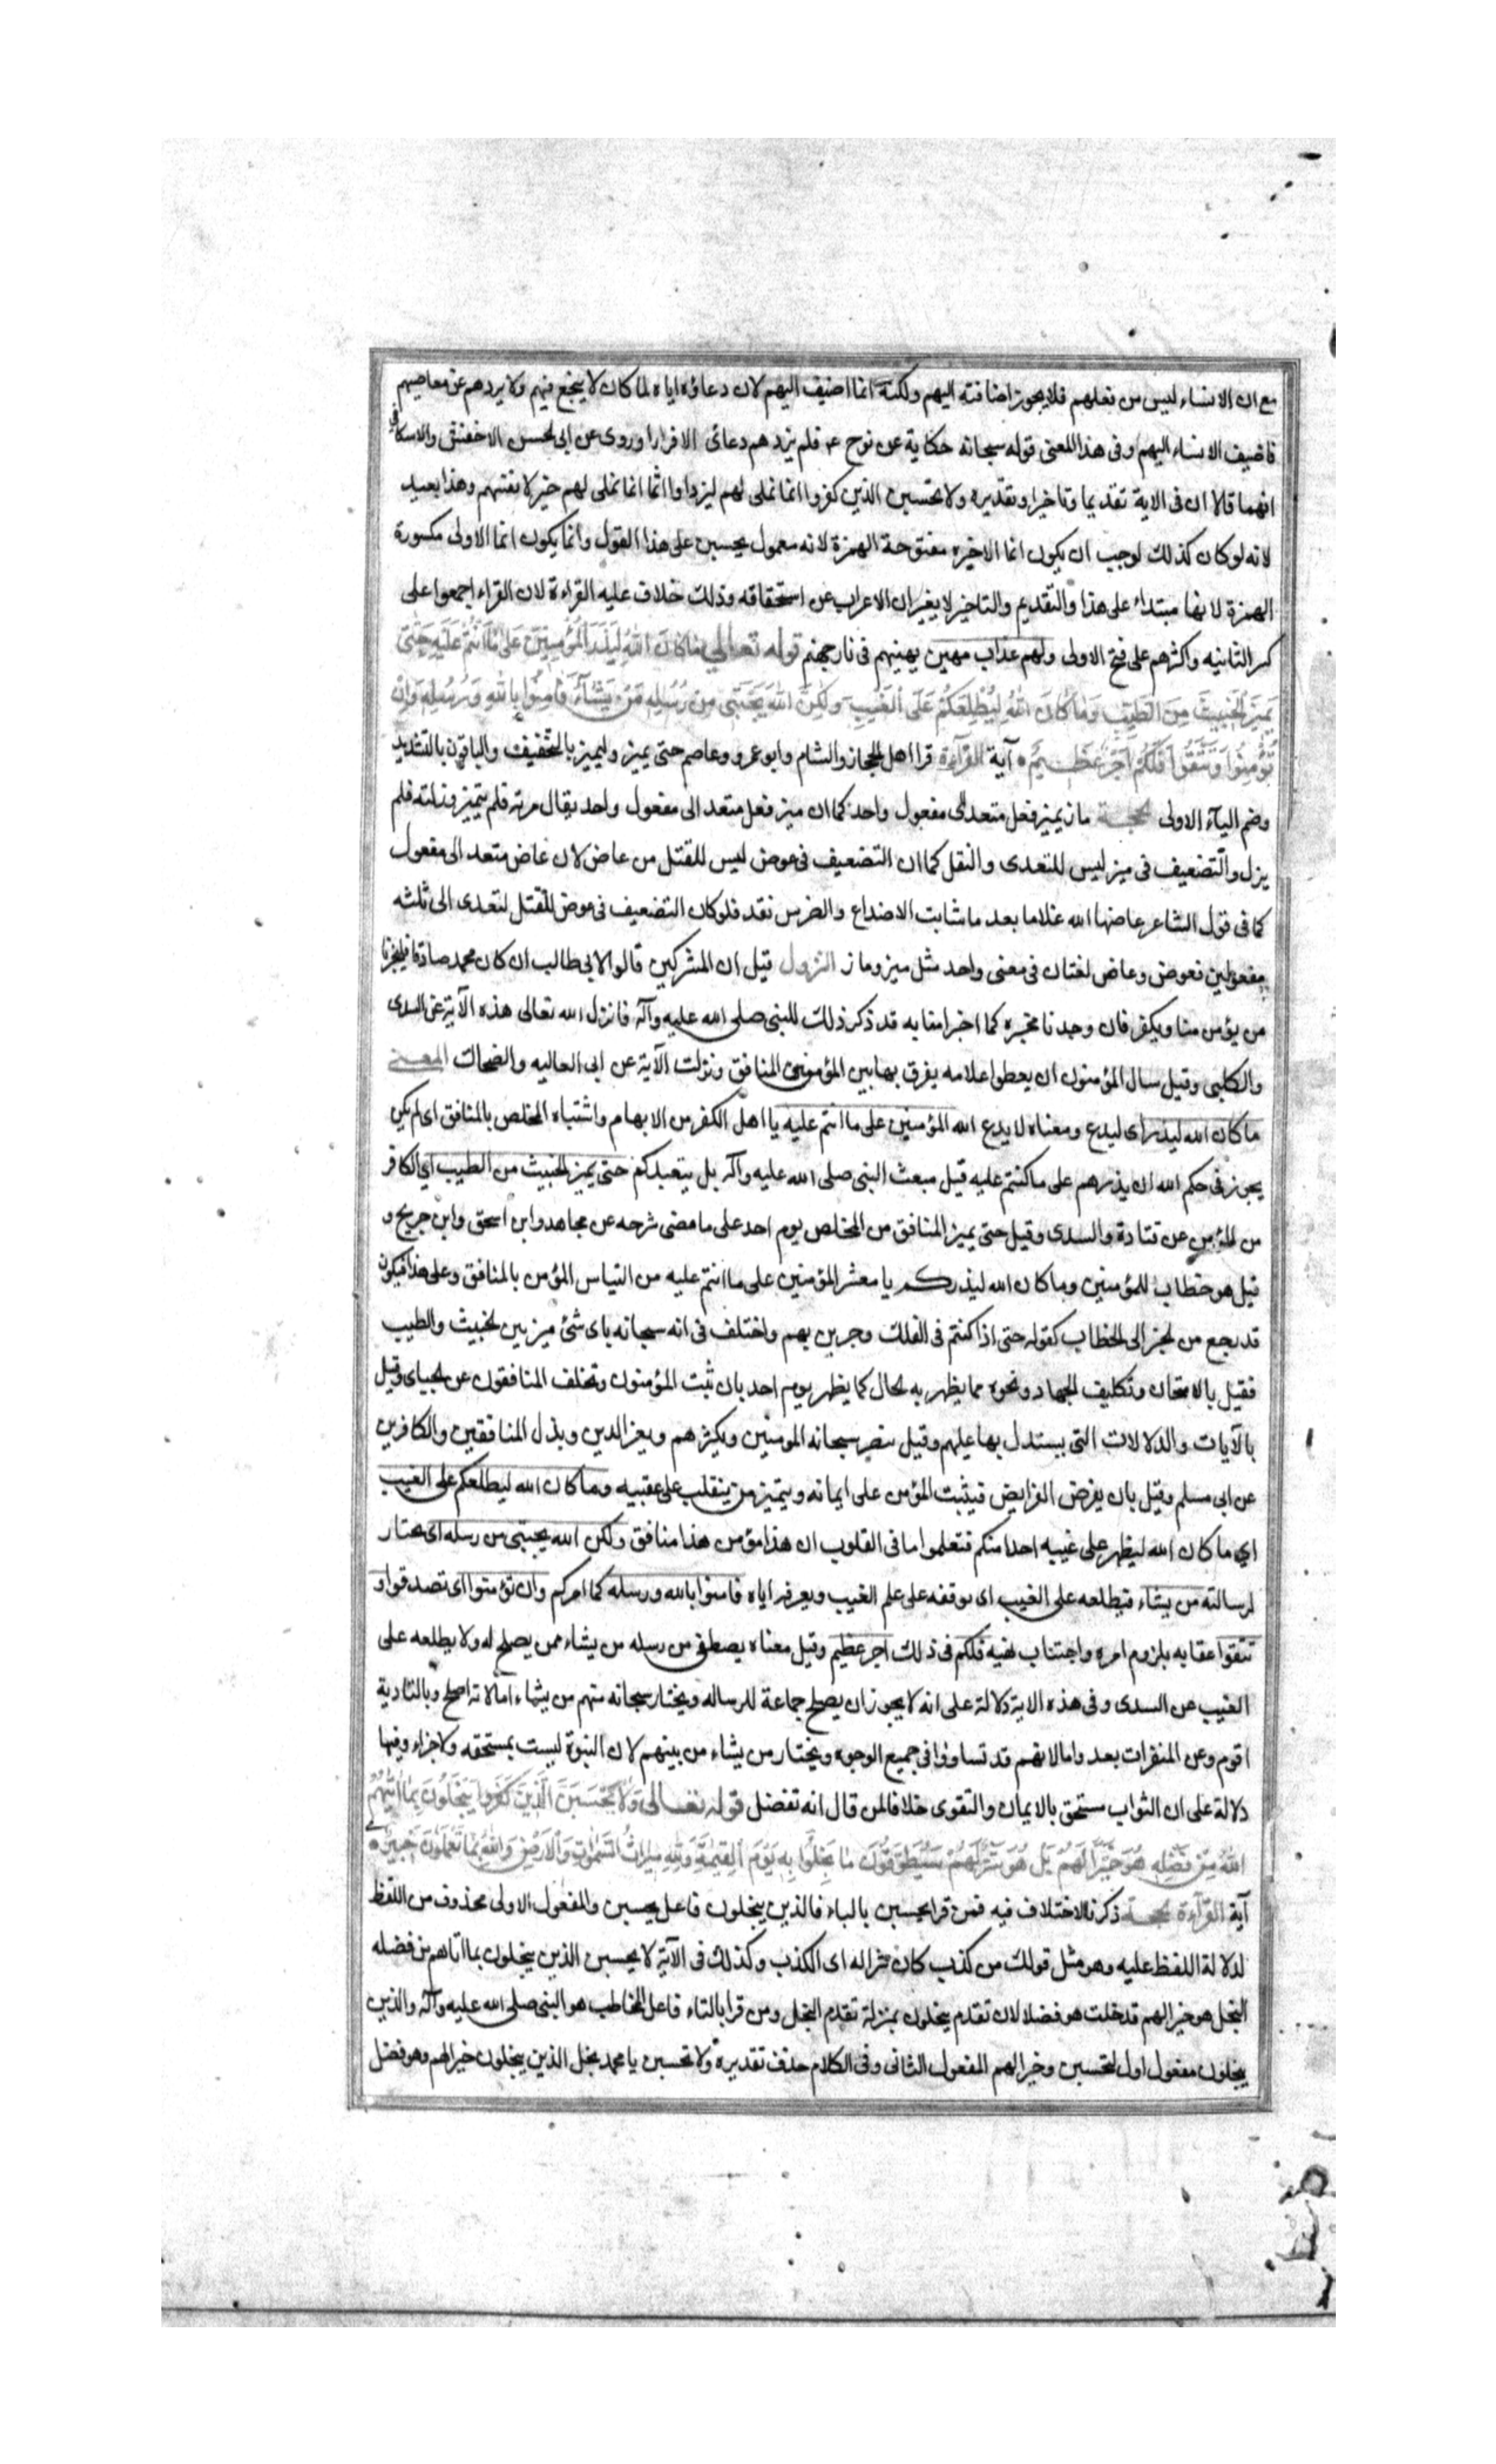 مع ان الانساء ليس من فعلهم فلا يجوز اضافته اليهم ولكنه انما اضيف اليهم لان دعاؤه اياه لما كان لا ينجع فيهم ولا يردهم عن معاصيهم
فاضيف الانساء اليهم وفى هذا المعنى قوله سبحانه حكاية عن نوح ع فلم يزدهم دعائى الا فرارا وروى عن ابى الحسن الاخفش والاسكافى
انهما قالا ان فى الاية تقديما وتاخيرا وتقديره ولا تحسبن الذين كفروا انما نملى لهم ليزدادوا اثما انما نملى لهم خير لانفسهم وهذا بعيد
لانه لو كان كذلك لوجب ان يكون انما الاخيره مفتوحة الهمزة لانه معمول يحسبن على هذا القول وانما يكون انما الاولى مكسورة
الهمزة لانها مبتداء على هذا والتقديم والتاخير لا يغيران الاعراب عن استحقاقه وذلك خلاف عليه القراءة لان القراء اجمعوا على
كسر الثانيه واكثرهم على فتح الاولى ولهم عذاب مهين يهينهم فى نار جهنم قوله تعالى ما كان الله ليذر المؤمنين على ما انتم عليه حتى
يميز الخبيث من الطيب وما كان الله ليطلعكم على الغيب ولكن الله يجتبى من رسله من يشاء فامنوا بالله ورسله وان
تؤمنوا وتتقوا فلكم اجر عظيم آية القرآءة قرا اهل الحجاز والشام وابو عمرو وعاصم حتى يميز وليميز بالتخفيف والباقون بالتشديد
وضم اليآء الاولى الحجة ماز يميز فعل متعد الى مفعول واحد كما ان ميز فعل متعد الى مفعول واحد يقال مزته فلم يتميز وزلته فلم
يزل والتضعيف فى ميز ليس للتعدى والنقل كما ان التضعيف فى عوض ليس للنقل من عاض لان عاض متعد الى مفعول
كما فى قول الشاعر عاضها الله غلاما بعد ما شابت الاصداع والضرس نقد فلو كان التضعيف فى عوض للنقل لتعدى الى ثلثه
مفعولين فعوض وعاض لغتان فى معنى واحد مثل ميز وماز النزول قيل ان المشركين قالوا لابى طالب ان كان محمد صادقا فليخبرنا
من يؤمن منا ويكفر فان وجدنا مخبره كما اخبر امنا به قد ذكر ذلك للنبى صلى الله عليه وآله فانزل الله تعالى هذه الآية عن السدى
والكلبى وقيل سال المؤمنون ان يعطوا علامه يفرق بها بين المؤمنين المنافق ونزلت الآية عن ابى العاليه والضحاك المعنى
ما كان الله ليذر اى ليدع ومعناه لا يدع الله المؤمنين على ما انتم عليه يا اهل الكفر من الابهام واشتباه المخلص بالمنافق اى لم يكن
يجوز فى حكم الله ان يذرهم على ما كنتم عليه قبل مبعث النبى صلى الله عليه وآله بل يتعبدكم حتى يميز الخبيث من الطيب اى الكافر
من المؤمن عن قتادة والسدى وقيل حتى يميز المنافق من المخلص يوم احد على ما مضى شرحه عن مجاهد وابن اسحق وابن جريج و
قيل هو خطاب للمؤمنين وما كان الله ليذركم يا معشر المؤمنين على ما انتم عليه من التباس المؤمن بالمنافق وعلى هذا فيكون
قد رجع من الخبر الى الخطاب كقوله حتى اذا كنتم فى الفلك وجرين بهم واختلف فى انه سبحانه باى شئ ميز بين الخبيث والطيب
فقيل بالامتحان وتكليف الجهاد ونحوه مما يظهر به الحال كما يظهر يوم احد بان ثبت المؤمنون وتخلف المنافقون عن الجبياى وقيل
بالآيات والدلالات التى يستدل بها عليهم وقيل بنصر سبحانه المومنين ويكثرهم ويعز الدين ويذل المنافقين والكافرين
عن ابى مسلم وقيل بان يفرض الفرايض فيثبت المؤمن على ايمانه ويتميز من ينقلب على عقبيه وما كان الله ليطلعكم على الغيب
اى ما كان الله ليظهر على غيبه احدا منكم فتعلموا ما فى القلوب ان هذا مؤمن هذا منافق ولكن الله يجتبى من رسله اى يختار
لرسالته من يشاء فيطلعه على الغيب اى يوقفه على علم الغيب ويعرفه اياه فامنوا بالله ورسله كما امركم وان تؤمنوا اى تصدقوا و
تتقوا عقابه بلزوم امره واجتناب نهيه فلكم فى ذلك اجر عظيم وقيل معناه يصطفى من رسله من يشاء ممن يصلح له ولا يطلعه على
الغيب عن السدى وفى هذه الاية دلالة على انه لا يجوز ان يصلح جماعة للرساله ويختار سبحانه منهم من يشاء اما لانه اصلح وبالتادية
اقوم وعن المنفرات بعد واما لانهم قد تساووا فى جميع الوجوه ويختار من يشاء من بينهم لان النبوة ليست بمستحقه ولا جزاء وفيها
دلالة على ان الثواب مستحق بالايمان والتقوى خلافا لمن قال انه تفضل قوله تعالى ولا تحسبن الذين كفروا يبخلون بما اتيهم
الله من فضله هو خيرا لهم بل هو شر لهم سيطوقون ما بخلوا به يوم القيمة ولله ميراث السموات والارض والله بما تعملون خبير
آية القرآءة الحجة ذكرنا الاختلاف فيه فمن قرا يحسبن بالياء فالذين يبخلون فاعل يحسبن والمفعول الاولى محذوف من اللفظ
لدلالة اللفظ عليه وهو مثل قولك من كذب كان شرا له اى الكذب وكذلك فى الآية لا يحسبن الذين يبخلون بما اتاهم من فضله
البخل هو خيرا لهم قد خلت هو فضلا لان تقدم يبخلون بمنزلة تقدم البخل ومن قرا بالتاء فاعل المخاطب هو النبى صلى الله عليه وآله والذين
يبخلون مفعول اول لتحسبن وخيرا لهم المفعول الثانى وفى الكلام حذف تقديره ولا تحسبن يا محمد بخل الذين يبخلون خيرا لهم وهو فضل